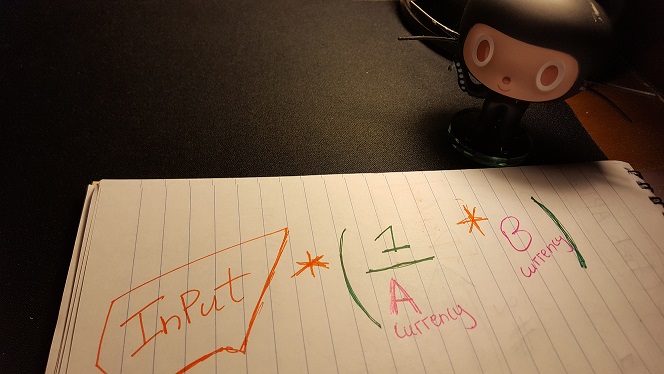 Input * ( 1 / A currency * B currency )